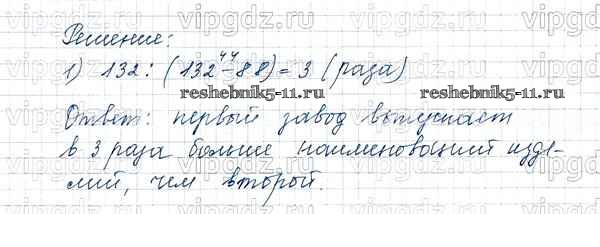 vipgdz.ru vipgdz.ru vipgdz.ru
Решение:
44
1) 132 : (132 - 88) = 3 (раза)
reshebnik5-11.ru reshebnik5-11.ru
Ответ: первый завод выпускает
vipgdz.ru vipgdz.ru vipgdz.ru
в 3 раза больше наименований изде-
лий, чем второй.
vipgdz.ru vipgdz.ru vipgdz.ru